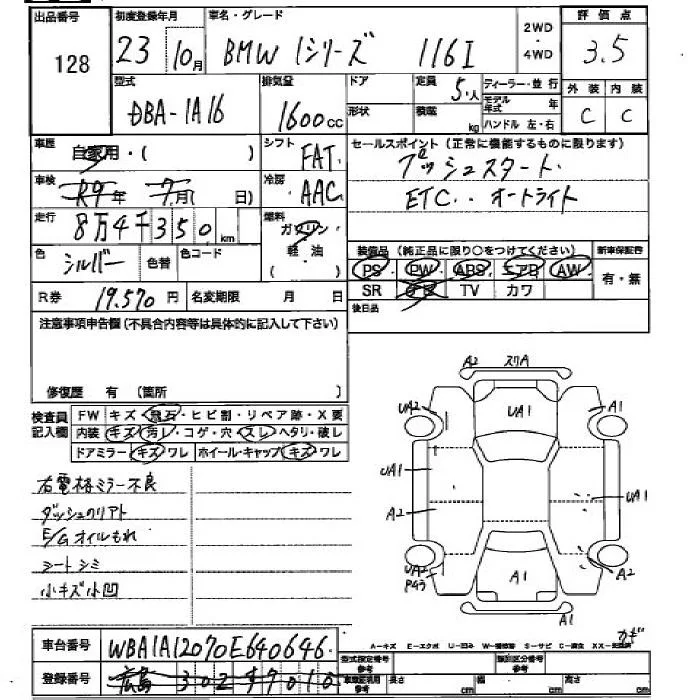 出品番号 初度登録年月 車名・グレード 2WD・4WD 評価点
128 23 10月 BMW 1シリーズ 116I 3.5
型式 排気量 ドア 定員 5人 ディーラー・並行 外装 内装
DBA-1A16 1600cc 形状 積載 kg モデル年式 年 C C
ハンドル 左・右
車歴 自家用・( ) シフト FAT セールスポイント(正常に機能するものに限ります)
車検 R9年 7月( 日) 冷房 AAC プッシュスタート
走行 8万4千350km 燃料 ガソリン・軽油 ( ) ETC.. オートライト
色 シルバー 色替 色コード 装備品(純正品に限り○をつけてください) 新車保証書
PS PW ABS エアB AW 有・無
R券 19,570円 名変期限 月 日 SR TV カワ
注意事項申告欄(不具合内容等は具体的に記入して下さい) 後日品
修復歴 有(箇所 )
検査員記入欄 FW キズ・飛石・ヒビ割・リペア跡・X要
内装 キズ・汚レ・コゲ・穴・スレ・ヘタリ・破レ
ドアミラー キズ・ワレ ホイール・キャップ キズ・ワレ
右電格ミラー不良
E/Gオイルもれ
シートシミ
小キズ小凹
A2 スリA
UA2 UA1 A1
UA1 UA1
A2
UA2 A1 A2
A1
A-キズ E-エクボ U-凹み W-補修跡 S-サビ C-腐食 XX-交換済
車台番号 WBA1A12070E640646.
型式指定番号 類別区分番号
登録番号 広島 302
長さ cm 幅 cm 高さ cm